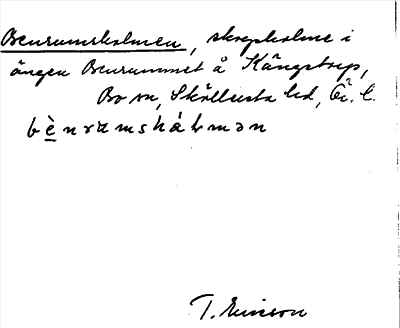 Benrumsholmen, skogsholme i
ängen Benrummet å Kångstorp,
Bo sn, Sköllersta hd, Ör. l.
bènrumshål​mən
T. Ericson